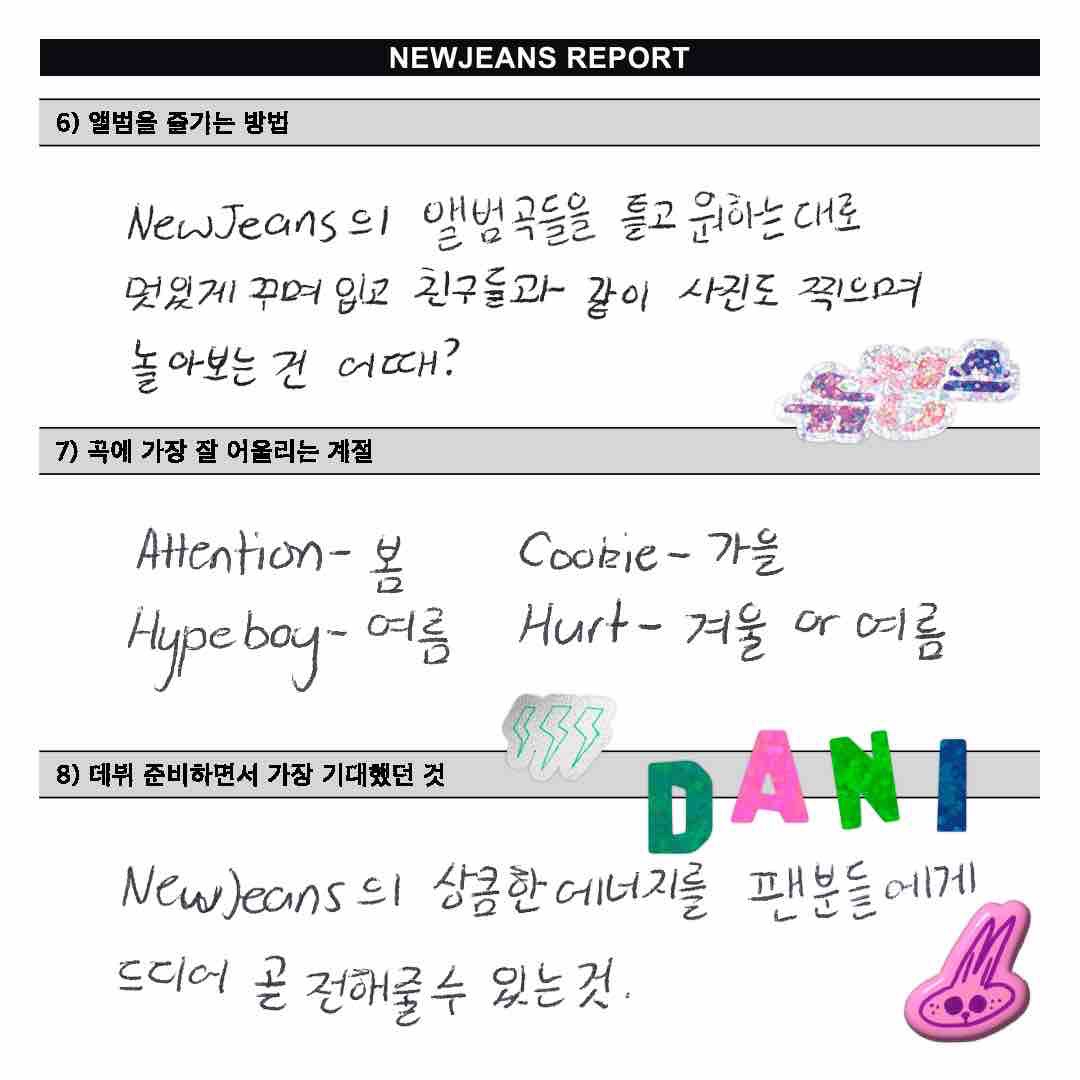 NEWJEANS REPORT
6) 앨범을 즐기는 방법
NewJeans의 앨범곡들을 틀고 원하는대로
멋있게 꾸며 입고 친구들과 같이 사진도 찍으며
놀아보는 건 어때?
뉴진스
7) 곡에 가장 잘 어울리는 계절
Attention - 봄 Cookie - 가을
Hypeboy - 여름 Hurt - 겨울 or 여름
8) 데뷔 준비하면서 가장 기대했던 것
DANI
NewJeans의 상큼한 에너지를 팬분들에게
드디어 곧 전해줄 수 있는 것.